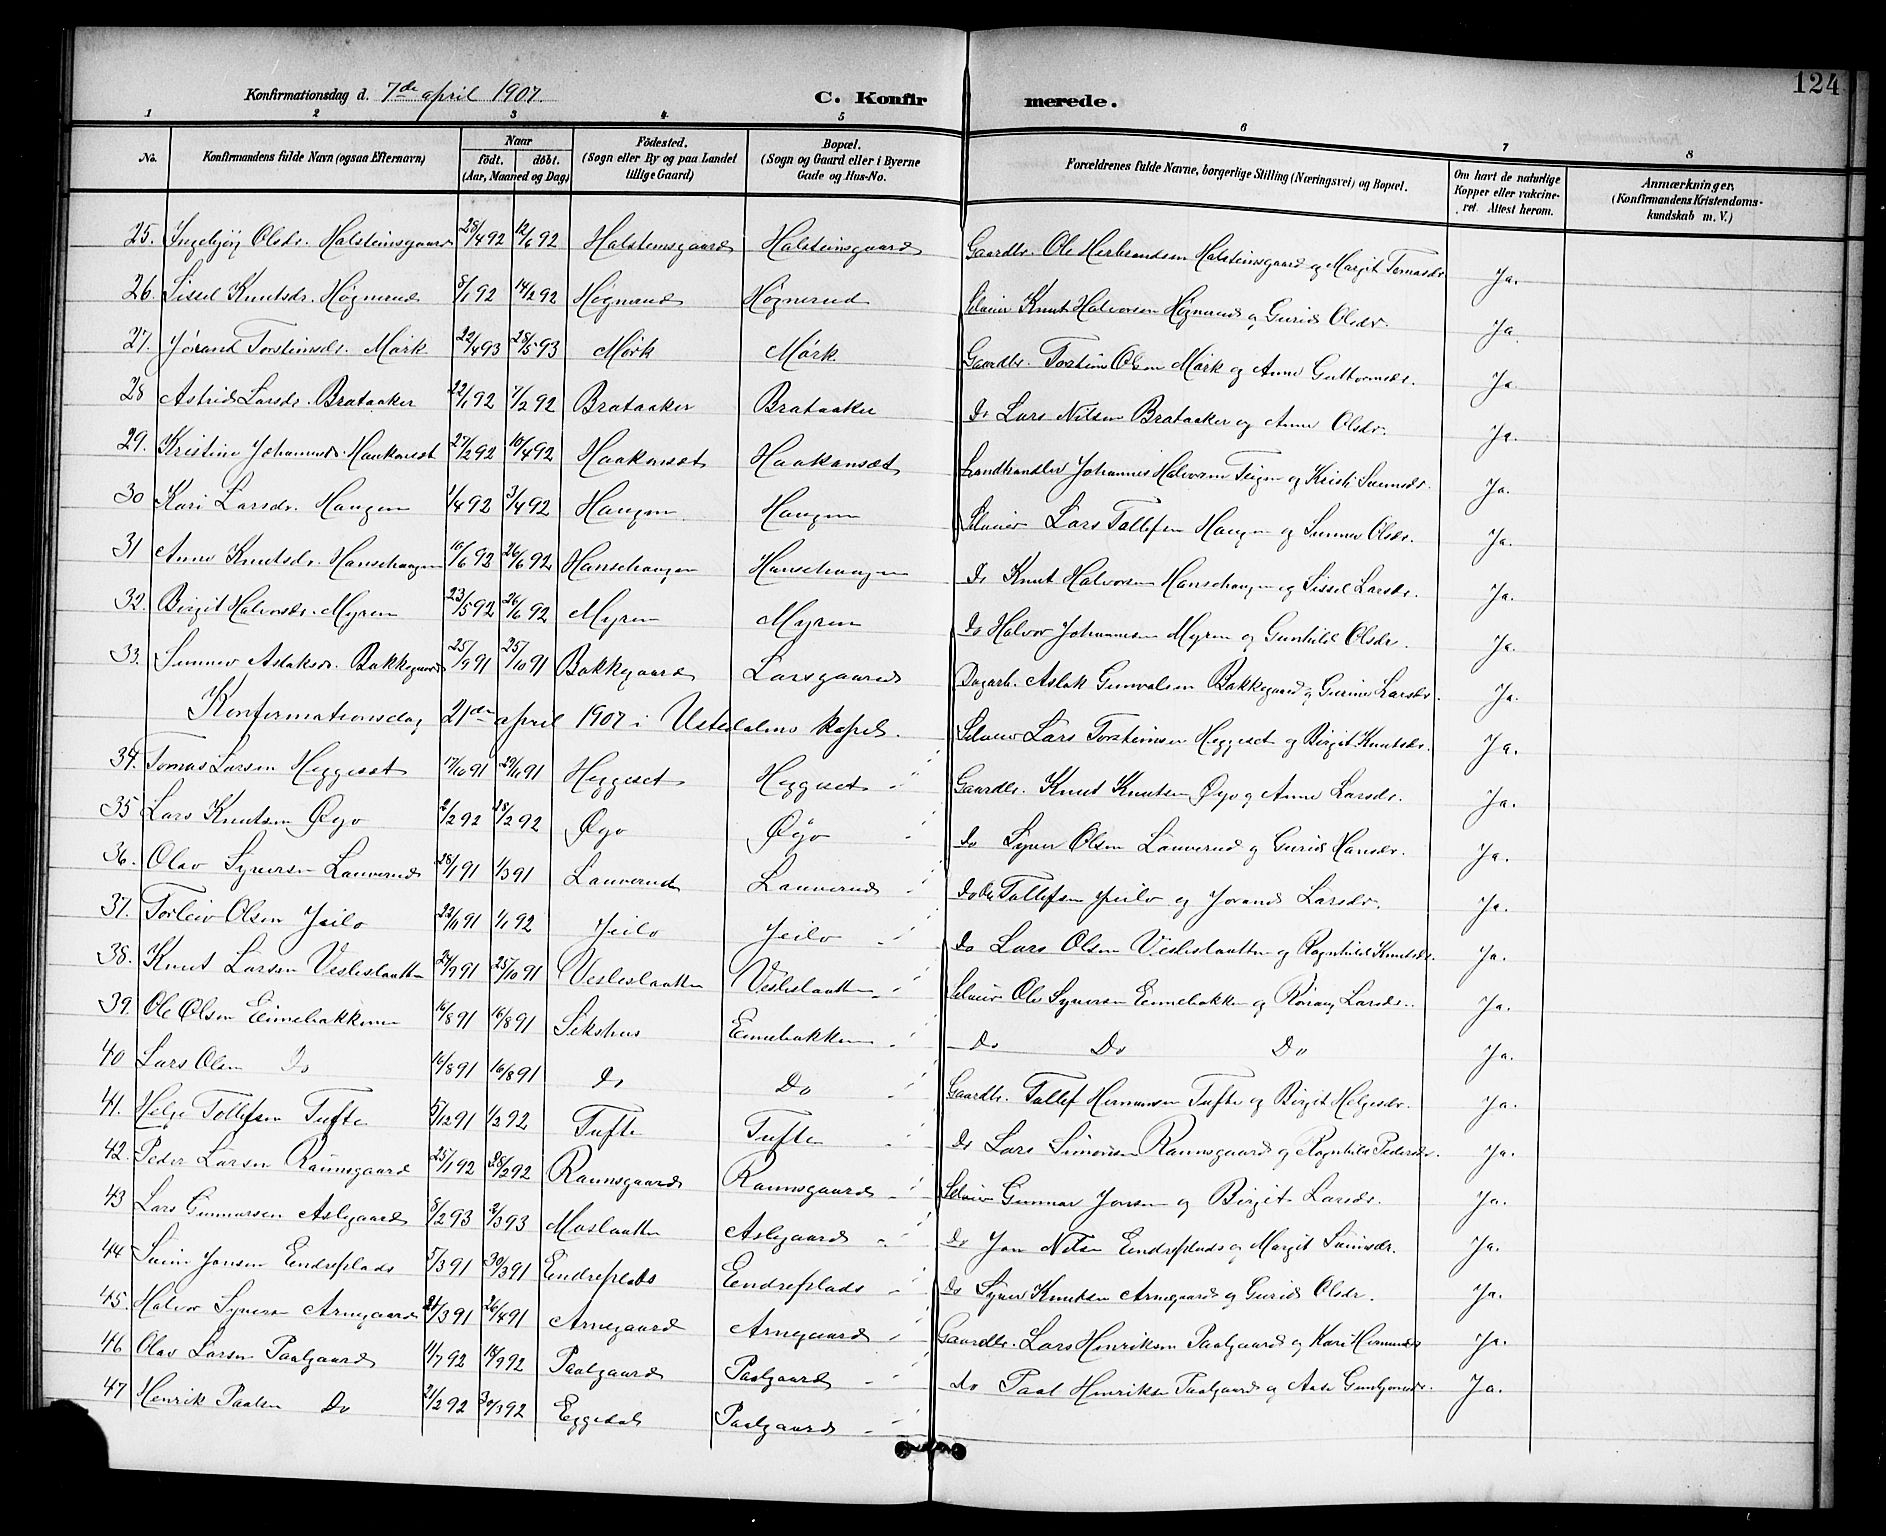 124
Konfirmationsdag d. 7de april 1907.
C. Konfirmerede.
1 2 3 4 5 6 7 8
No. Konfirmandens fulde Navn (ogsaa Efternavn) Naar født. døbt. (Aar, Maaned og Dag) Fødested. (Sogn eller By og paa Landet tillige Gaard) Bopæl. (Sogn og Gaard eller i Byerne Gade og Hus-No. Forældrenes fulde Navne, borgerlige Stilling (Næringsvei) og Bopæl. Om havt de naturlige Kopper eller vakcineret. Attest herom. Anmærkninger. (Konfirmandens Kristendomskundskab m. V.)
25. Ingebjøg Olsdr. Halsteinsgaard 28/4 92 12/6 92 Halsteinsgaard Halsteinsgaard Gaardbr. Ole Herbrandsen Halsteinsgaard og Margit Tomasdr. Ja.
26. Sissel Knutsdr. Høgnerud 8/1 92 14/2 92 Høgnerud Høgnerud Selveier Knut Halvorsen Høgnerud og Gurid Olsdr. Ja.
27. Jørand Torsteinsdr. Mørk 22/4 93 28/5 93 Mørk Mørk Gaardbr. Torstein Olsen Mørk og Anne Guttormsdr. Ja.
28 Astrid Larsdr. Brataaker 22/1 92 7/2 92 Brataaker Brataaker Do Lars Nilsen Brataaker og Anne Olsdr. Ja.
29. Kristine Johannesdr. Haakonset 27/2 92 10/4 92 Haakonsæt Haakonsæt Landhandler Johannes Halvorsen Teigen og Kristi Sveinsdr. Ja.
30 Kari Larsdr. Haugen 1/4 92 3/4 92 Haugen Haugen Selveier Lars Tollefsen Haugen og Sunnev Olsdr. Ja.
31 Anne Knutsdr. Hansehaugen 10/6 92 26/6 92 Hansehaugen Hansehaugen Do Knut Halvorsen Hansehaugen og Sissel Larsdr. Ja.
32. Birgit Halvorsdr. Myren 23/5 92 26/6 92 Myren Myren Do Halvor Johannesen Myren og Gunhild Olsdr. Ja.
33. Sunnev Aslaksdr. Bakkegaard 25/9 91 25/10 91 Bakkegaard Larsgaard Dagarb. Aslak Gunvalsen Bakkegaard og Gurine Larsdr. Ja.
Konfirmationsdag 21de april 1907 i Ustedalens kapel.
34. Tomas Larsen Heggeset 17/10 91 29/11 91 Heggeset Heggeset Selveier Lars Torsteinsen Heggeset og Birgit Knutsdr. Ja.
35 Lars Knutsen Øyo 2/2 92 28/2 92 Øyo Øyo Gaardbr. Knut Knutsen Øyo og Anne Larsdr. Ja.
36. Olav Syversen Lauverud 28/1 91 1/3 91 Lauverud Lauverud Do Syver Olsen Lauverud og Gurid Hansdr. Ja.
37. Torleiv Olsen Jeilo 22/11 91 1/1 92 Jeilo Jeilo Do Ole Tollefsen Jeilo og Jorand Larsdr. Ja.
38. Knut Larsen Veslislaatten 24/9 91 25/10 91 Veslislaatten Veslislaatten Do Lars Olsen Veslislaatten og Ragnhild Knutsdr. Ja.
39. Ole Olsen Einebakken 16/8 91 16/8 91 Sekshus Einebakken Selveier Ole Syversen Einebakken og Rönaug Larsdr. Ja.
40 Lars Olsen Do 16/8 91 16/8 91 Do Do Do Do Do Ja.
41. Helge Tollefsen Tufte 5/12 91 1/2 92 Tufte Tufte Gaardbr. Tollef Hermansen Tufte og Birgit Helgesdr. Ja.
42. Peder Larsen Raunsgaard 25/1 92 28/2 92 Raunsgaard Raunsgaard Do Lars Simonsen Raunsgaard og Ragnhild Pedersdr. Ja.
43 Lars Gunnarsen Aslegaard 8/2 93 2/3 93 Moslaatten Aslegaard Selveier Gunnar Jonsen og Birgit Larsdr. Ja.
44 Svein Jonsen Eindreplads 5/3 91 30/3 91 Eindreplads Eendreplads Do Jon Nilsen Eendreplads og Margit Sveinsdr. Ja.
45. Halvor Syversen Arnegaard 21/3 91 26/4 91 Arnegaard Arnegaard Do Syver Knutsen Arnegaard og Gurid Olsdr. Ja.
46 Olav Larsen Paalgaard 11/7 92 18/9 92 Paalgaard Paalgaard Gaardbr. Lars Henriksen Paalgaard og Kari Hermundsdr. Ja.
47 Henrik Paalsen Do 21/2 92 30/3 92 Eggedal Paalgaard Do Paal Henriksen Paalgaard og Aase Ja.